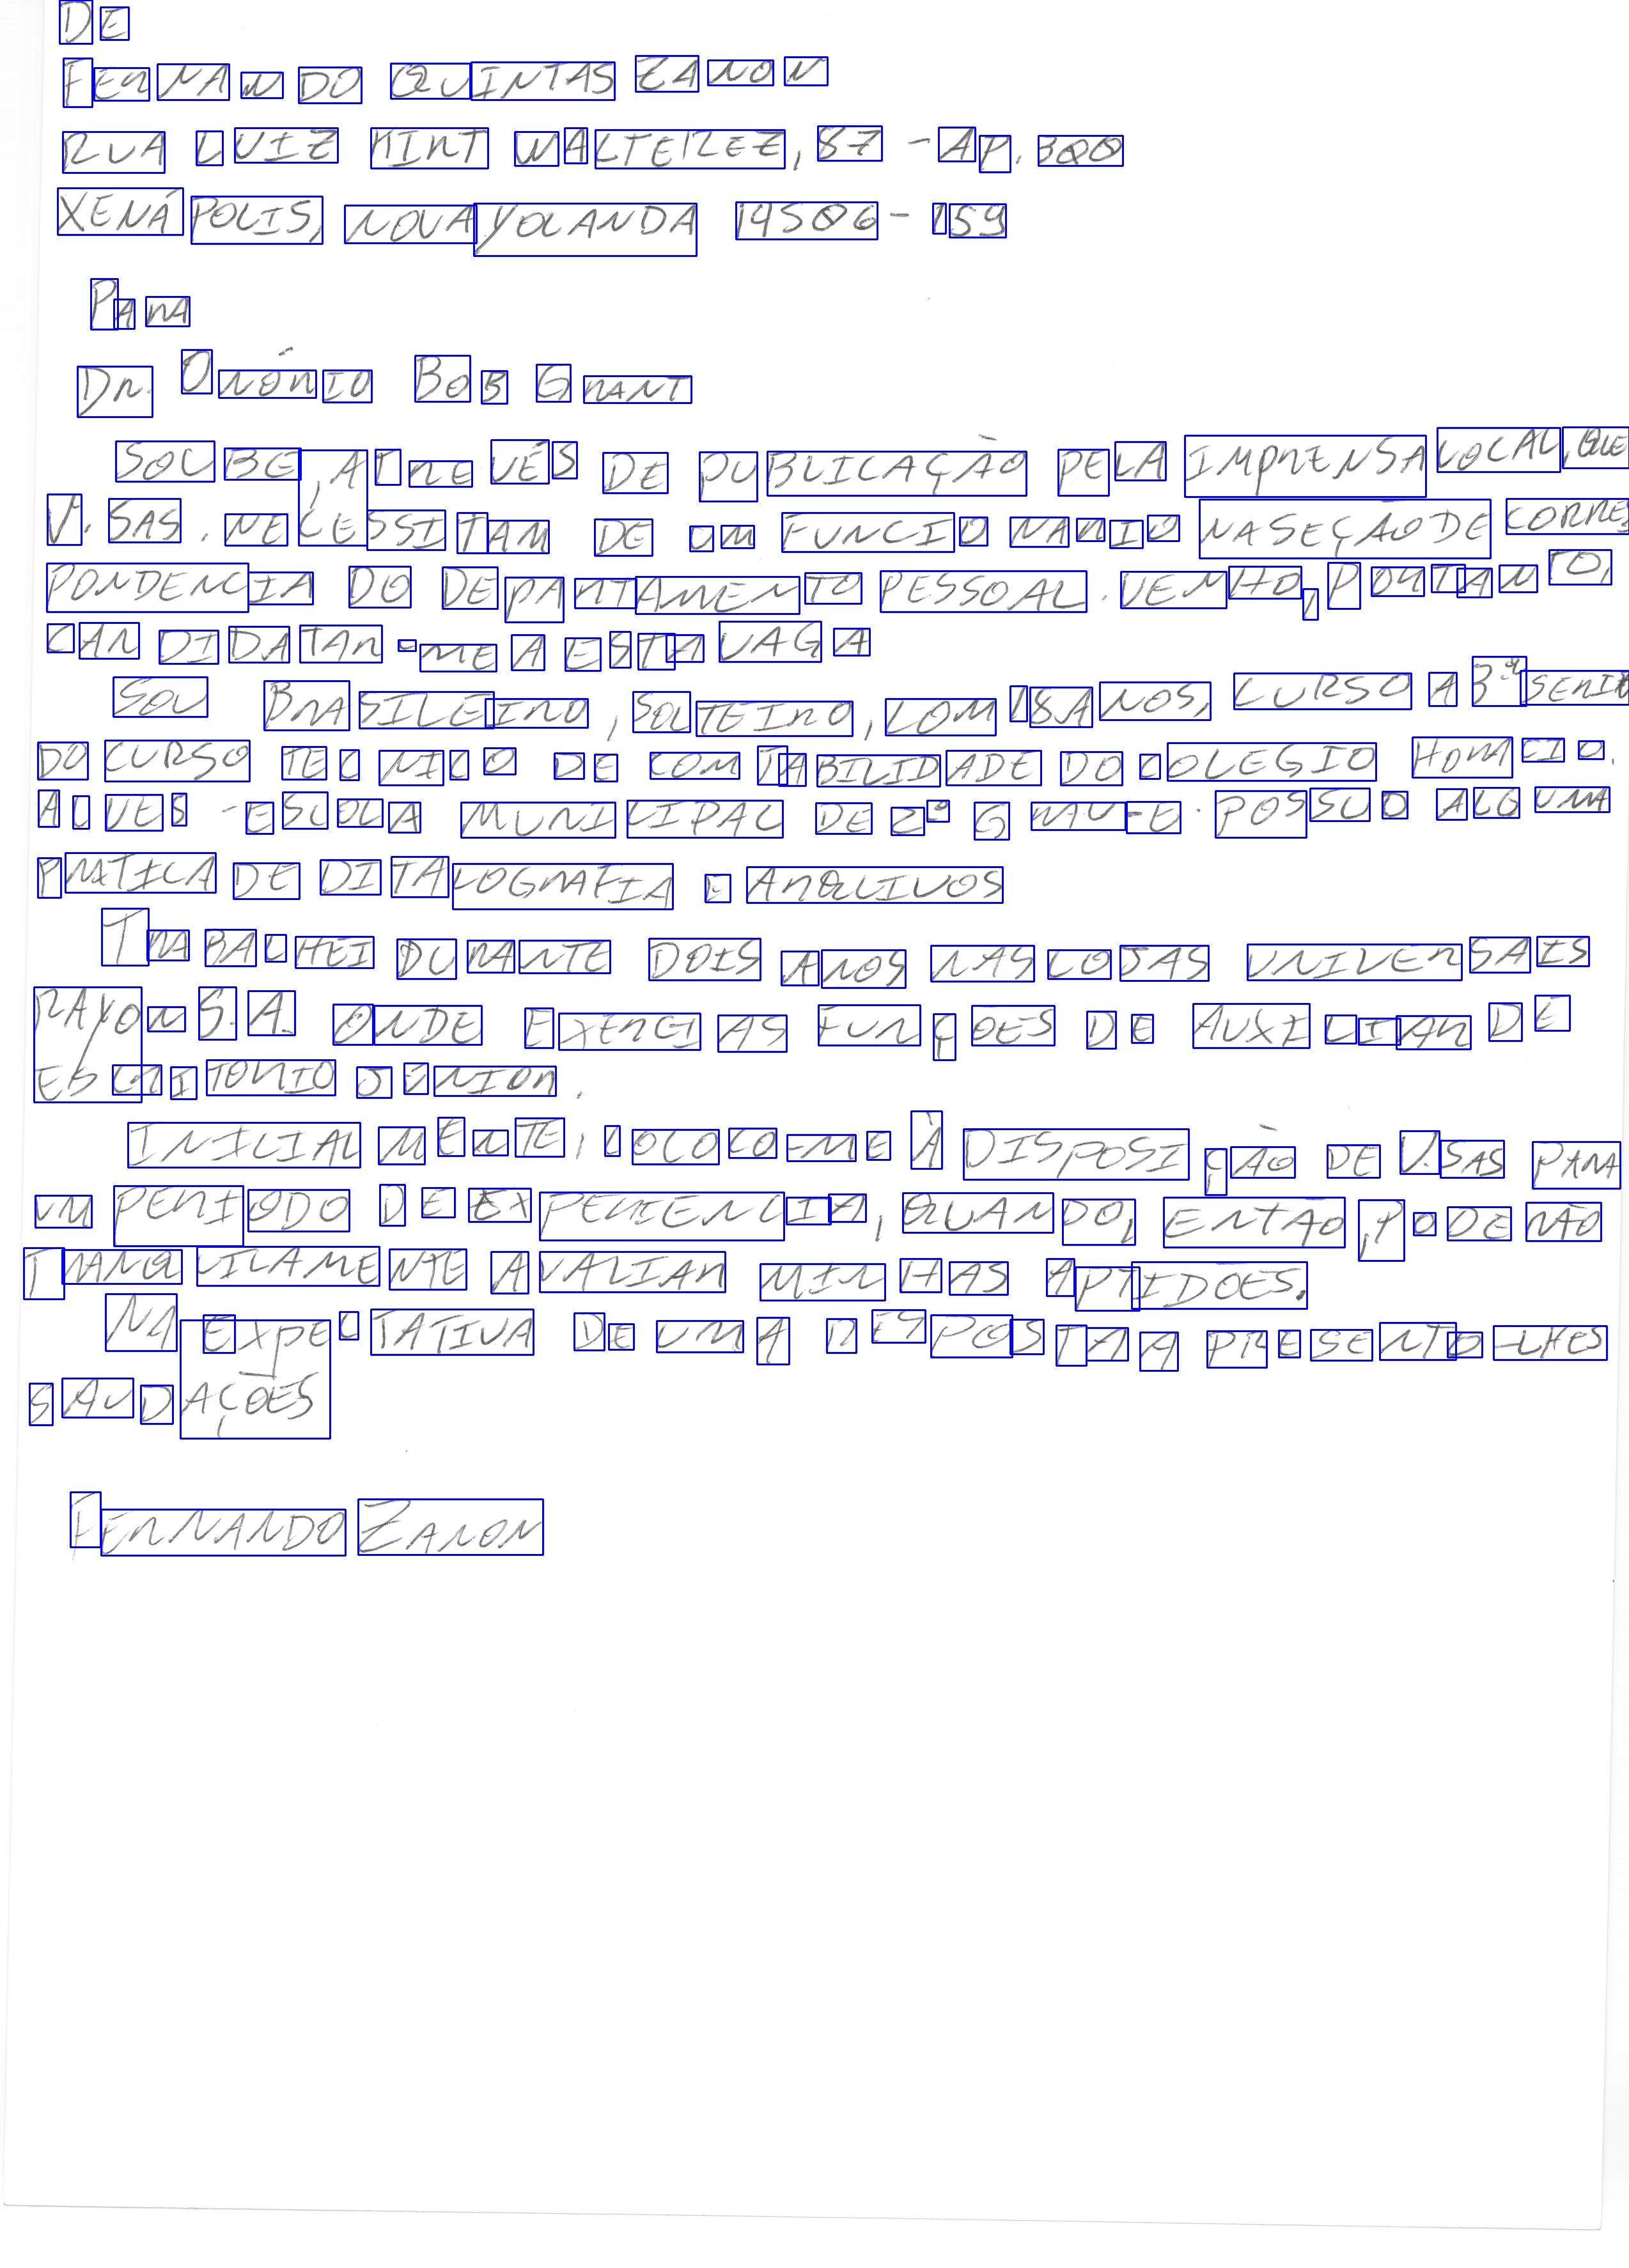 DE
FERNANDO QUINTAS ZANON
RUA LUIZ KINT WALTEREZ, 87 - AP. 300
XENÁPOLIS, NOVA YOLANDA 14506-159
PARA
DR. ONÓRIO BOB GRANT
SOUBE, ATREVÉS DE PUBLICAÇÃO PELA IMPRENSA LOCAL, QUE
V. SAS. NECESSITAM DE UM FUNCIONARIO NA SEÇÃO DE CORRES
PONDENCIA DO DEPARTAMENTO PESSOAL. VENHO, PORTANTO,
CANDIDATAR-ME A ESTA VAGA
SOU BRASILEIRO, SOLTEIRO, COM 18 ANOS, CURSO A 3ª SERIE
DO CURSO TECNICO DE COMTABILIDADE DO COLEGIO HORACIO.
ALVES - ESCOLA MUNICIPAL DE 2º GRAU-E. POSSUO ALGUMA
PRATICA DE DITALOGRAFIA E ARQUIVOS
TRABALHEI DURANTE DOIS ANOS NAS LOJAS UNIVERSAIS
RAYON S.A. ONDE EXERCI AS FUNÇÕES DE AUXILIAR DE
ESCRITORIO JÚNIOR.
INICIALMENTE, COLOCO-ME À DISPOSIÇÃO DE V.SAS PARA
UM PERIODO DE EXPERIENCIA, QUANDO, ENTÃO, PODERÃO
TRANQUILAMENTE AVALIAR MINHAS APTIDÕES.
NA EXPECTATIVA DE UMA RESPOSTA APRESENTO-LHES
SAUDAÇÕES
FERNANDO ZANON